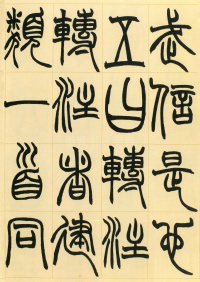 武信是也
五曰轉注
轉注者建
類一首同